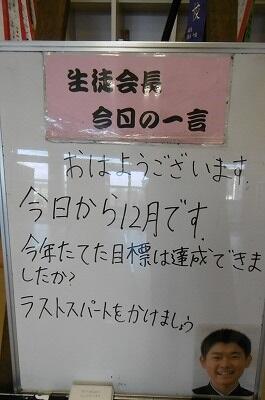 生徒会長
今日の一言
おはようございます
今日から12月です
今年たてた目標は達成できま
したか?
ラストスパートをかけましょう